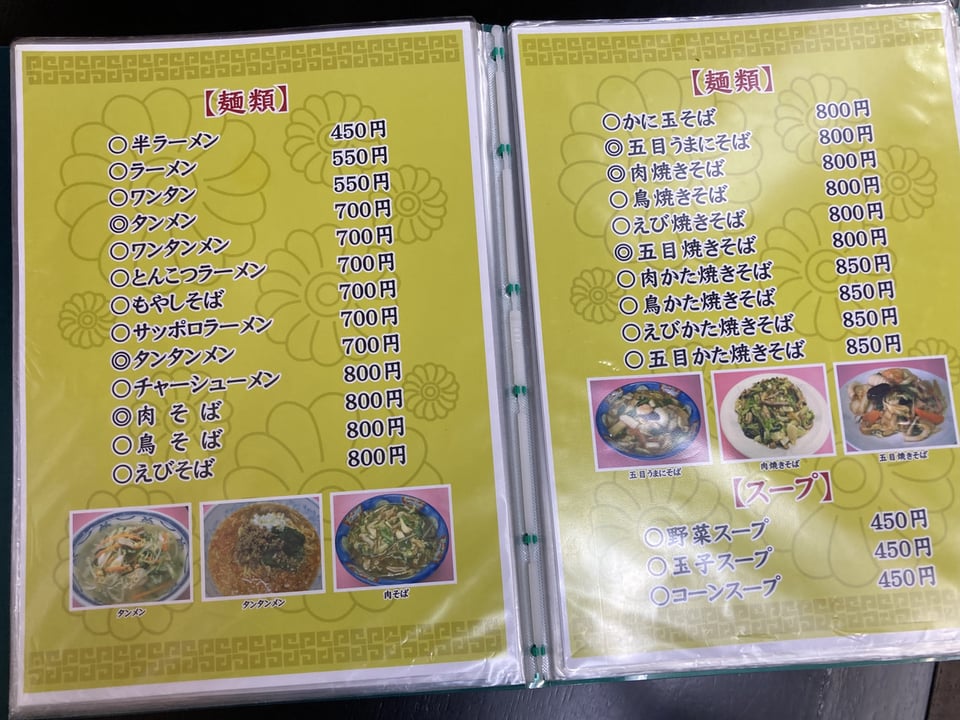 【麺類】
○半ラーメン 450円
○ラーメン 550円
○ワンタン 550円
◎タンメン 700円
○ワンタンメン 700円
○とんこつラーメン 700円
○もやしそば 700円
○サッポロラーメン 700円
◎タンタンメン 700円
○チャーシューメン 800円
◎肉そば 800円
○鳥そば 800円
○えびそば 800円
タンメン
タンタンメン
肉そば
【麺類】
○かに玉そば 800円
◎五目うまにそば 800円
◎肉焼きそば 800円
○鳥焼きそば 800円
○えび焼きそば 800円
◎五目焼きそば 800円
○肉かた焼きそば 850円
○鳥かた焼きそば 850円
○えびかた焼きそば 850円
○五目かた焼きそば 850円
五目うまにそば
肉焼きそば
五目焼きそば
【スープ】
○野菜スープ 450円
○玉子スープ 450円
○コーンスープ 450円